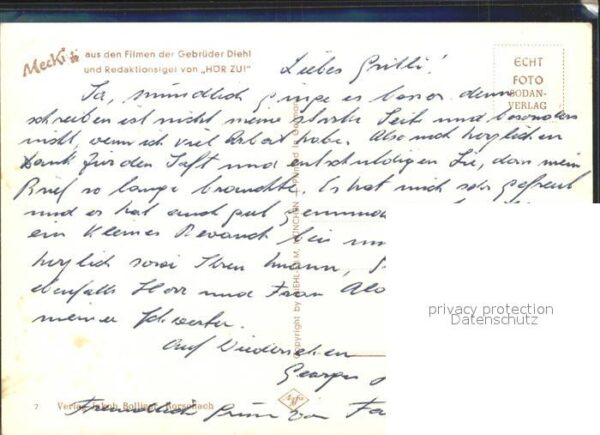 Mecki
aus den Filmen der Gebrüder Diehl
und Redaktionsigel von „HÖR ZU!"
ECHT
FOTO
BODAN-
VERLAG
Liebes Gritli!
Ja, mündlich ginge es besser denn
schreiben ist nicht meine starke Seite und besonders
nicht, wenn ich viel Arbeit habe. Also noch herzlichen
Dank für den Saft und entschuldigen Sie, dass mein
Brief so lange brauchte. Es hat mich sehr gefreut
und es hat auch gut
ein kleines bei
herzlich sowie Ihrem Mann,
ebenfalls Herr und Frau
meiner Schwester.
Auf Wiedersehen
Georges
Freundliche Grüsse von
Copyright by DIEHL-FILM, MÜNCHEN
7 Verlag Jakob Bolliger, Rorschach
Agfa
privacy protection
Datenschutz